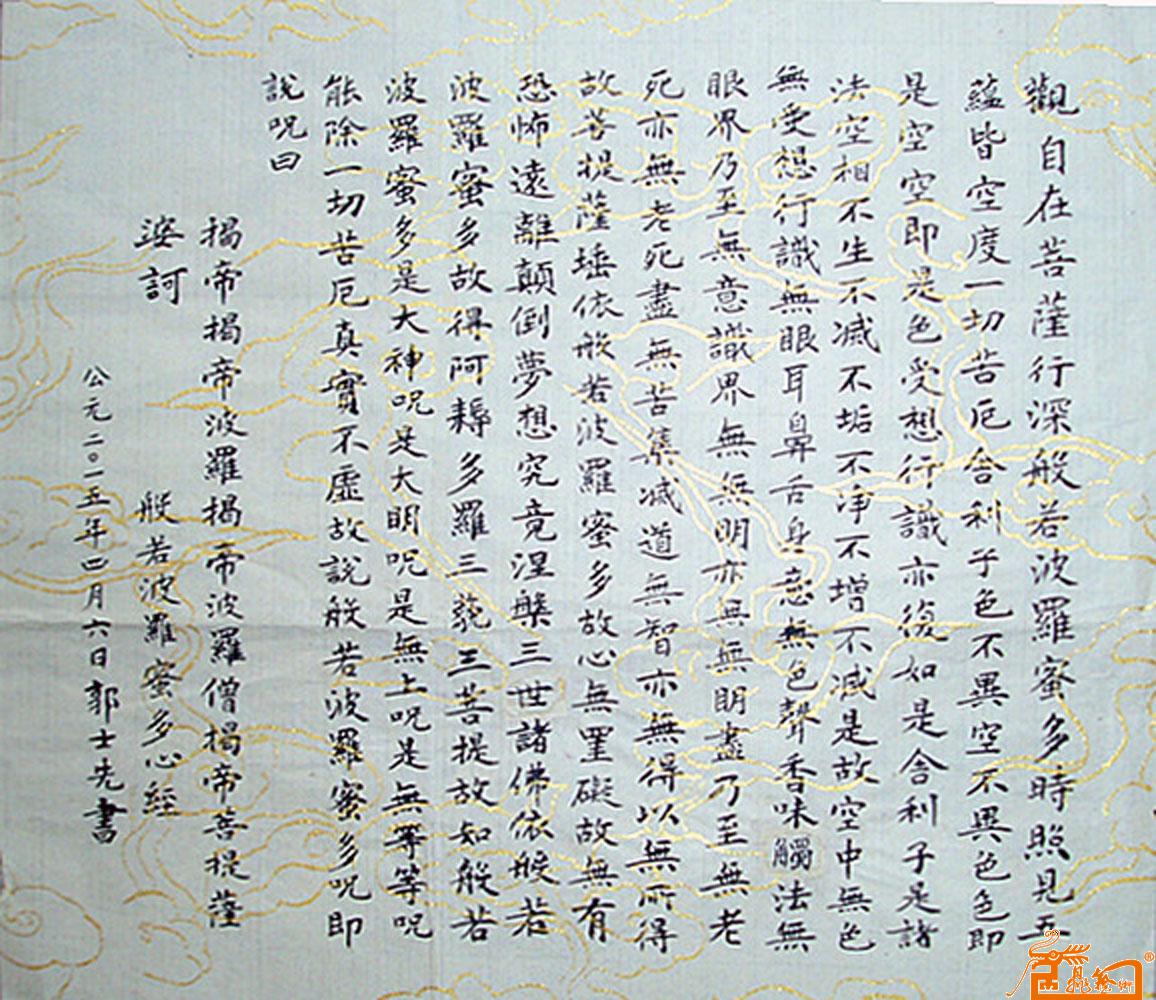 觀自在菩薩行深般若波羅蜜多時照見五
蘊皆空度一切苦厄舍利子色不異空不異色色即
是空空即是色受想行識亦復如是舍利子是諸
法空相不生不滅不垢不净不增不減是故空中無色
無受想行識無眼耳鼻舌身意無色聲香味觸法無
眼界乃至無意識界無無明亦無無明盡乃至無老
死亦無老死盡無苦集滅道無智亦無得以無所得
故菩提薩埵依般若波羅蜜多故心無罣礙故無有
恐怖遠離顛倒夢想究竟涅槃三世諸佛依般若
波羅蜜多故得阿耨多羅三藐三菩提故知般若
波羅蜜多是大神呪是大明呪是無上呪是無等等呪
能除一切苦厄真實不虛故說般若波羅蜜多呪即
說呪曰
揭帝揭帝波羅揭帝波羅僧揭帝菩提薩
婆訶 般若波羅蜜多心經
公元二〇一五年四月六日郭士先書